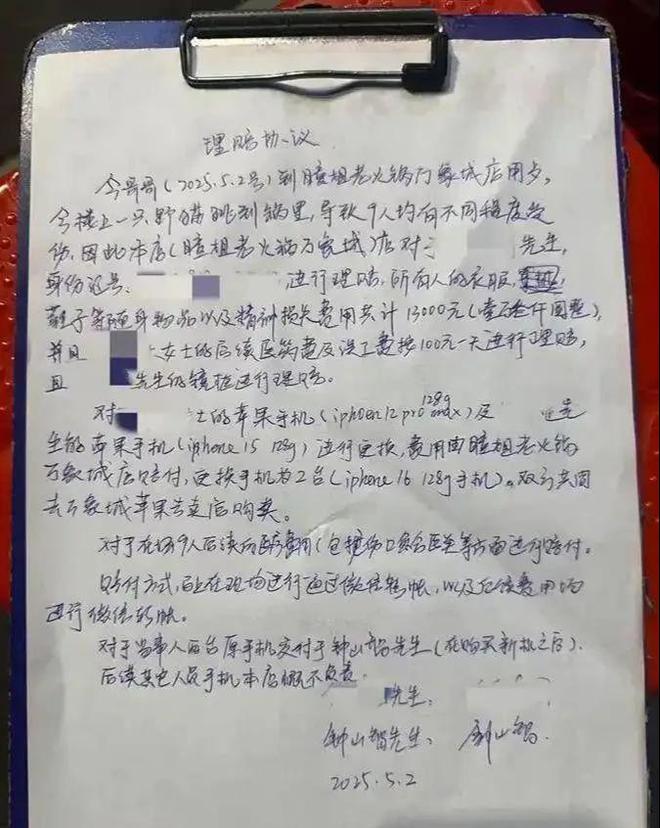 理赔协议
今哥哥(2025.5.2号)到瞳姐老火锅万象城店用歺,
今楼上一只野猫跳到锅里,导致9人均有不同程度受
伤,因此本店(瞳姐老火锅万象城)店对于 先生,
身份证号: 进行理赔,所有人的衣服,
鞋子等随身物品以及精神损失费用共计13000元(壹万叁仟圆整),
并且 女士的后续医药费及误工费按100元一天进行理赔,
且 先生的镜框进行理赔。
对 士的苹果手机(iphoen12pro max 128g)及 先
生的苹果手机(iphone 15 128g)进行更换,费用由瞳姐老火锅
万象城店赔付,更换手机为2台(iphone 16 128g手机)。双方共同
去万象城苹果专卖店购买。
对于在场9人后续的 费用(包括伤口 医美等方面进行赔付。
赔付方式,由在现场进行通过微信转帐,以及后续费用均
进行微信转帐。
对于当事人两台原手机交付于钟山智先生(在购买新机之后).
后续其它人员手机本店概不负责.
先生:
钟山智先生: 钟山智
2025.5.2